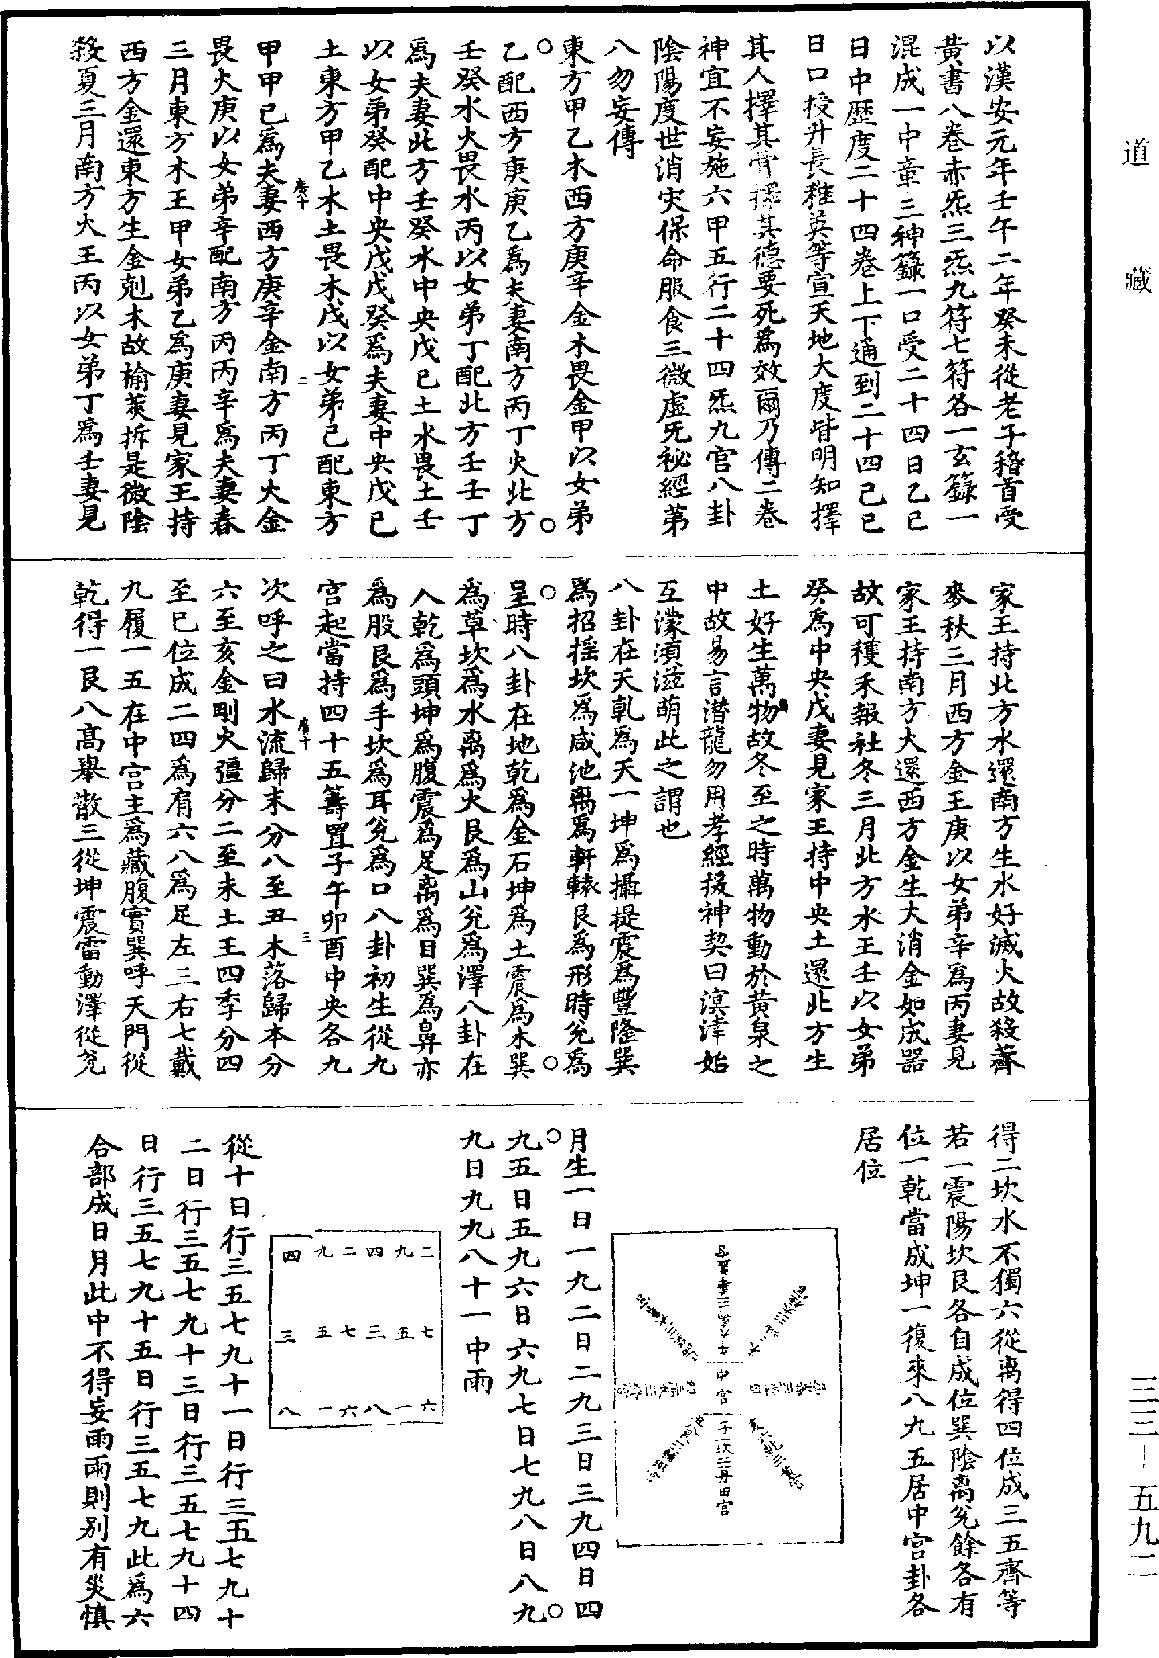 道藏
三三－五九二
以漢安元年壬午二年癸未從老子稽首受
黃書八卷赤炁三炁九符七符各一玄籙一
混成一中章三神籙一口受二十四日乙巳
日中歷度二十四卷上下通到二十四己巳
日口授升長稚英等宣天地大度皆明知擇
其人擇其骨擇其德要死為效爾乃傳二卷
神宜不妄施六甲五行二十四炁九宮八卦
陰陽度世消灾保命服食三微虛无祕經第
八勿妄傳
東方甲乙木西方庚辛金木畏金甲以女弟
乙配西方庚庚乙為夫妻南方丙丁火北方
壬癸水火畏水丙以女弟丁配北方壬壬丁
為夫妻北方壬癸水中央戊己土水畏土壬
以女弟癸配中央戊戊癸為夫妻中央戊己
土東方甲乙木土畏木戊以女弟己配東方
甲甲己為夫妻西方庚辛金南方丙丁火金
畏火庚以女弟辛配南方丙丙辛為夫妻春
三月東方木王甲女弟乙為庚妻見家王持
西方金還東方生金剋木故榆莢拆是微陰
殺夏三月南方火王丙以女弟丁為壬妻見
家王持北方水還南方生水好滅火故殺薺
麥秋三月西方金王庚以女弟辛為丙妻見
家王持南方火還西方金生火消金如成器
故可穫禾報社冬三月北方水王壬以女弟
癸為中央戊妻見家王持中央土還北方生
土好生萬物故冬至之時萬物動於黃泉之
中故易言潛龍勿用孝經援神契曰溟涬始
互濛澒滋萌此之謂也
八卦在天乾為天一坤為攝提震為豐隆巽
為招搖坎為咸池離為軒轅艮為形時兌為
呈時八卦在地乾為金石坤為土震為木巽
為草坎為水離為火艮為山兌為澤八卦在
人乾為頭坤為腹震為足離為目巽為鼻亦
為股艮為手坎為耳兌為口八卦初生從九
宮起當持四十五籌置子午卯酉中央各九
次呼之曰水流歸末分八至丑木落歸本分
六至亥金剛火彊分二至未土王四季分四
至巳位成二四為肩六八為足左三右七戴
九履一五在中宮主為藏腹實巽呼天門從
乾得一艮八高舉散三從坤震雷動澤從兌
得二坎水不獨六從離得四位成三五齊等
若一震陽坎艮各自成位巽陰離兌餘各有
位一乾當成坤一復來八九五居中宮卦各
居位
中宮
月生一日一九二日二九三日三九四日四
九五日五九六日六九七日七九八日八九
九日九九八十一中雨
二九四二九四
七五三七五三
六一八六一八
從十日行三五七九十一日行三五七九十
二日行三五七九十三日行三五七九十四
日行三五七九十五日行三五七九此為六
合部成日月此中不得妄雨雨則別有災慎